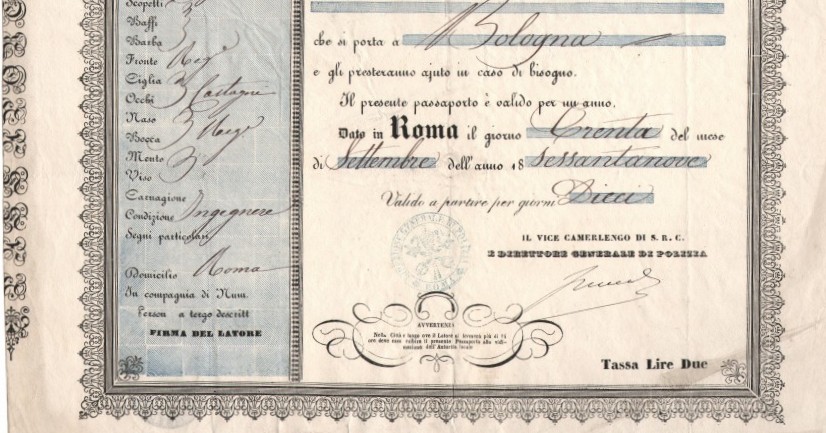 Scopetti
Baffi
Barba
Fronte Reg
Ciglia
Occhi Castagni
Naso
Bocca Reg
Mento
Viso
Carnagione
Condizione Ingegnere
Segni particolari
Domicilio Roma
In compagnia di Num.
Person a tergo descritt
FIRMA DEL LATORE
che si porta a Bologna
e gli presteranno ajuto in caso di bisogno.
Il presente passaporto è valido per un anno.
Dato in Roma il giorno Trenta del mese
di Settembre dell'anno 18 sessantanove
Valido a partire per giorni Dieci
IL VICE CAMERLENGO DI S. R. C.
E DIRETTORE GENERALE DI POLIZIA
AVVERTENZE
Nelle Città e luogo ove il Latore si fermerà più di 24
ore deve esso esibire il presente Passaporto alla vidi-
mazione dell'Autorità locale
Tassa Lire Due